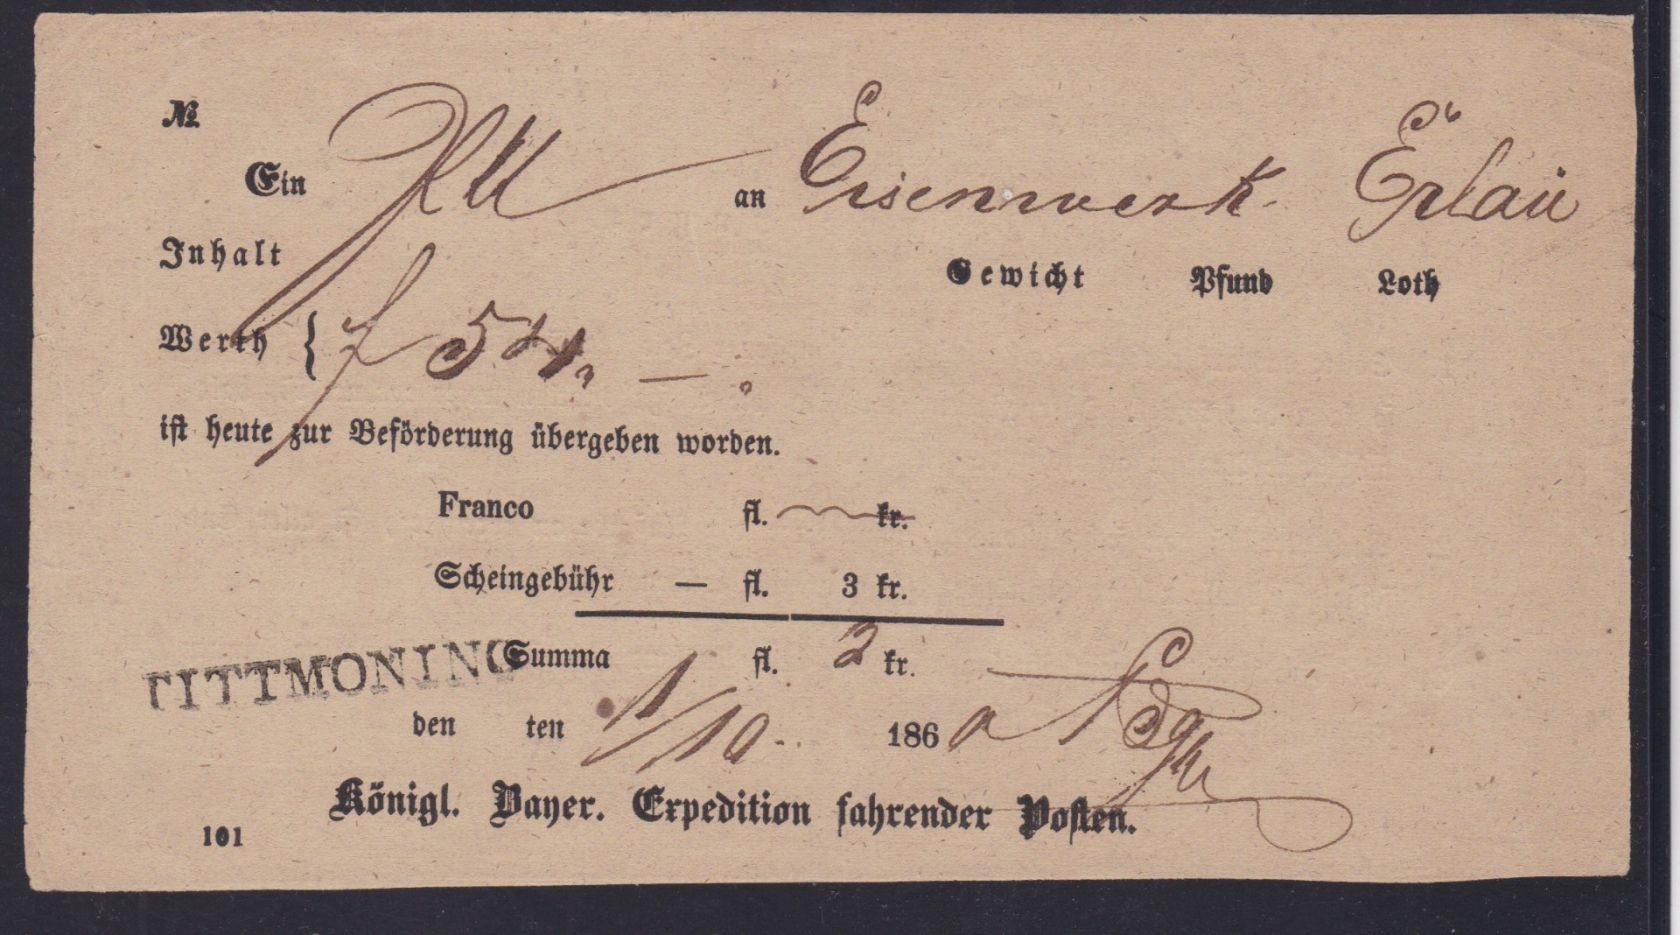 №
Ein an Eisenwerk Erlau
Inhalt
Gewicht Pfund Loth
Werth { f 54. — .
ist heute zur Beförderung übergeben worden.
Franco fl. kr.
Scheingebühr — fl. 3 kr.
Summa fl. 3 kr.
TITTMONING
den ten 1/10. 186
Königl. Bayer. Expedition fahrender Posten.
101